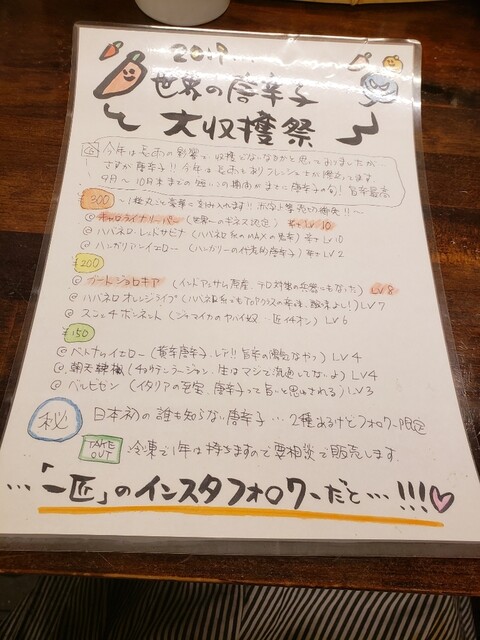 2019...
世界の唐辛子
大収獲祭
今年は長雨の影響で収穫できないなかと思っておりましたが、
さすが唐辛子!!今年は長雨もありフレッシュさが際立ってます。
9月〜10月末までの短いこの期間がまさに唐辛子の旬!旨辛最高
300 〜1種丸ごと豪華に
@ キャロライナリーパー (世界一のギネス認定) 辛さLv10
@ ハバネロ・レッドサビナ (ハバネロ系のMAXの激辛) 辛さLv10
@ ハンガリアンイエロー (ハンガリーの代表的唐辛子) 辛さLv2
¥200
@ ブートジョロキア (インド・アッサム原産、テロ対策の兵器にもなった) LV8
@ ハバネロオレンジ (ハバネロ系でもTOPクラスの辛味、酸味よし!) LV7
@ スコッチボンネット (ジャマイカのヤバイ奴…匠イチオシ) LV6
¥150
@ ベトナムイエロー (黄辛唐辛子、レア!!旨辛の陽気なやつ) LV4
@ 朝天辣椒 (チョウテンラージャン、生はマジで流通してないよ) LV4
@ ペルペゼン (イタリアの至宝、唐辛子って旨いと思わされる) LV3
秘 日本初の誰も知らない唐辛子…2種あるけどフォロワー限定
TAKE OUT 冷凍で1年は持ちますので要相談で販売します.
…「一匠」のインスタフォロワーだと…!!!